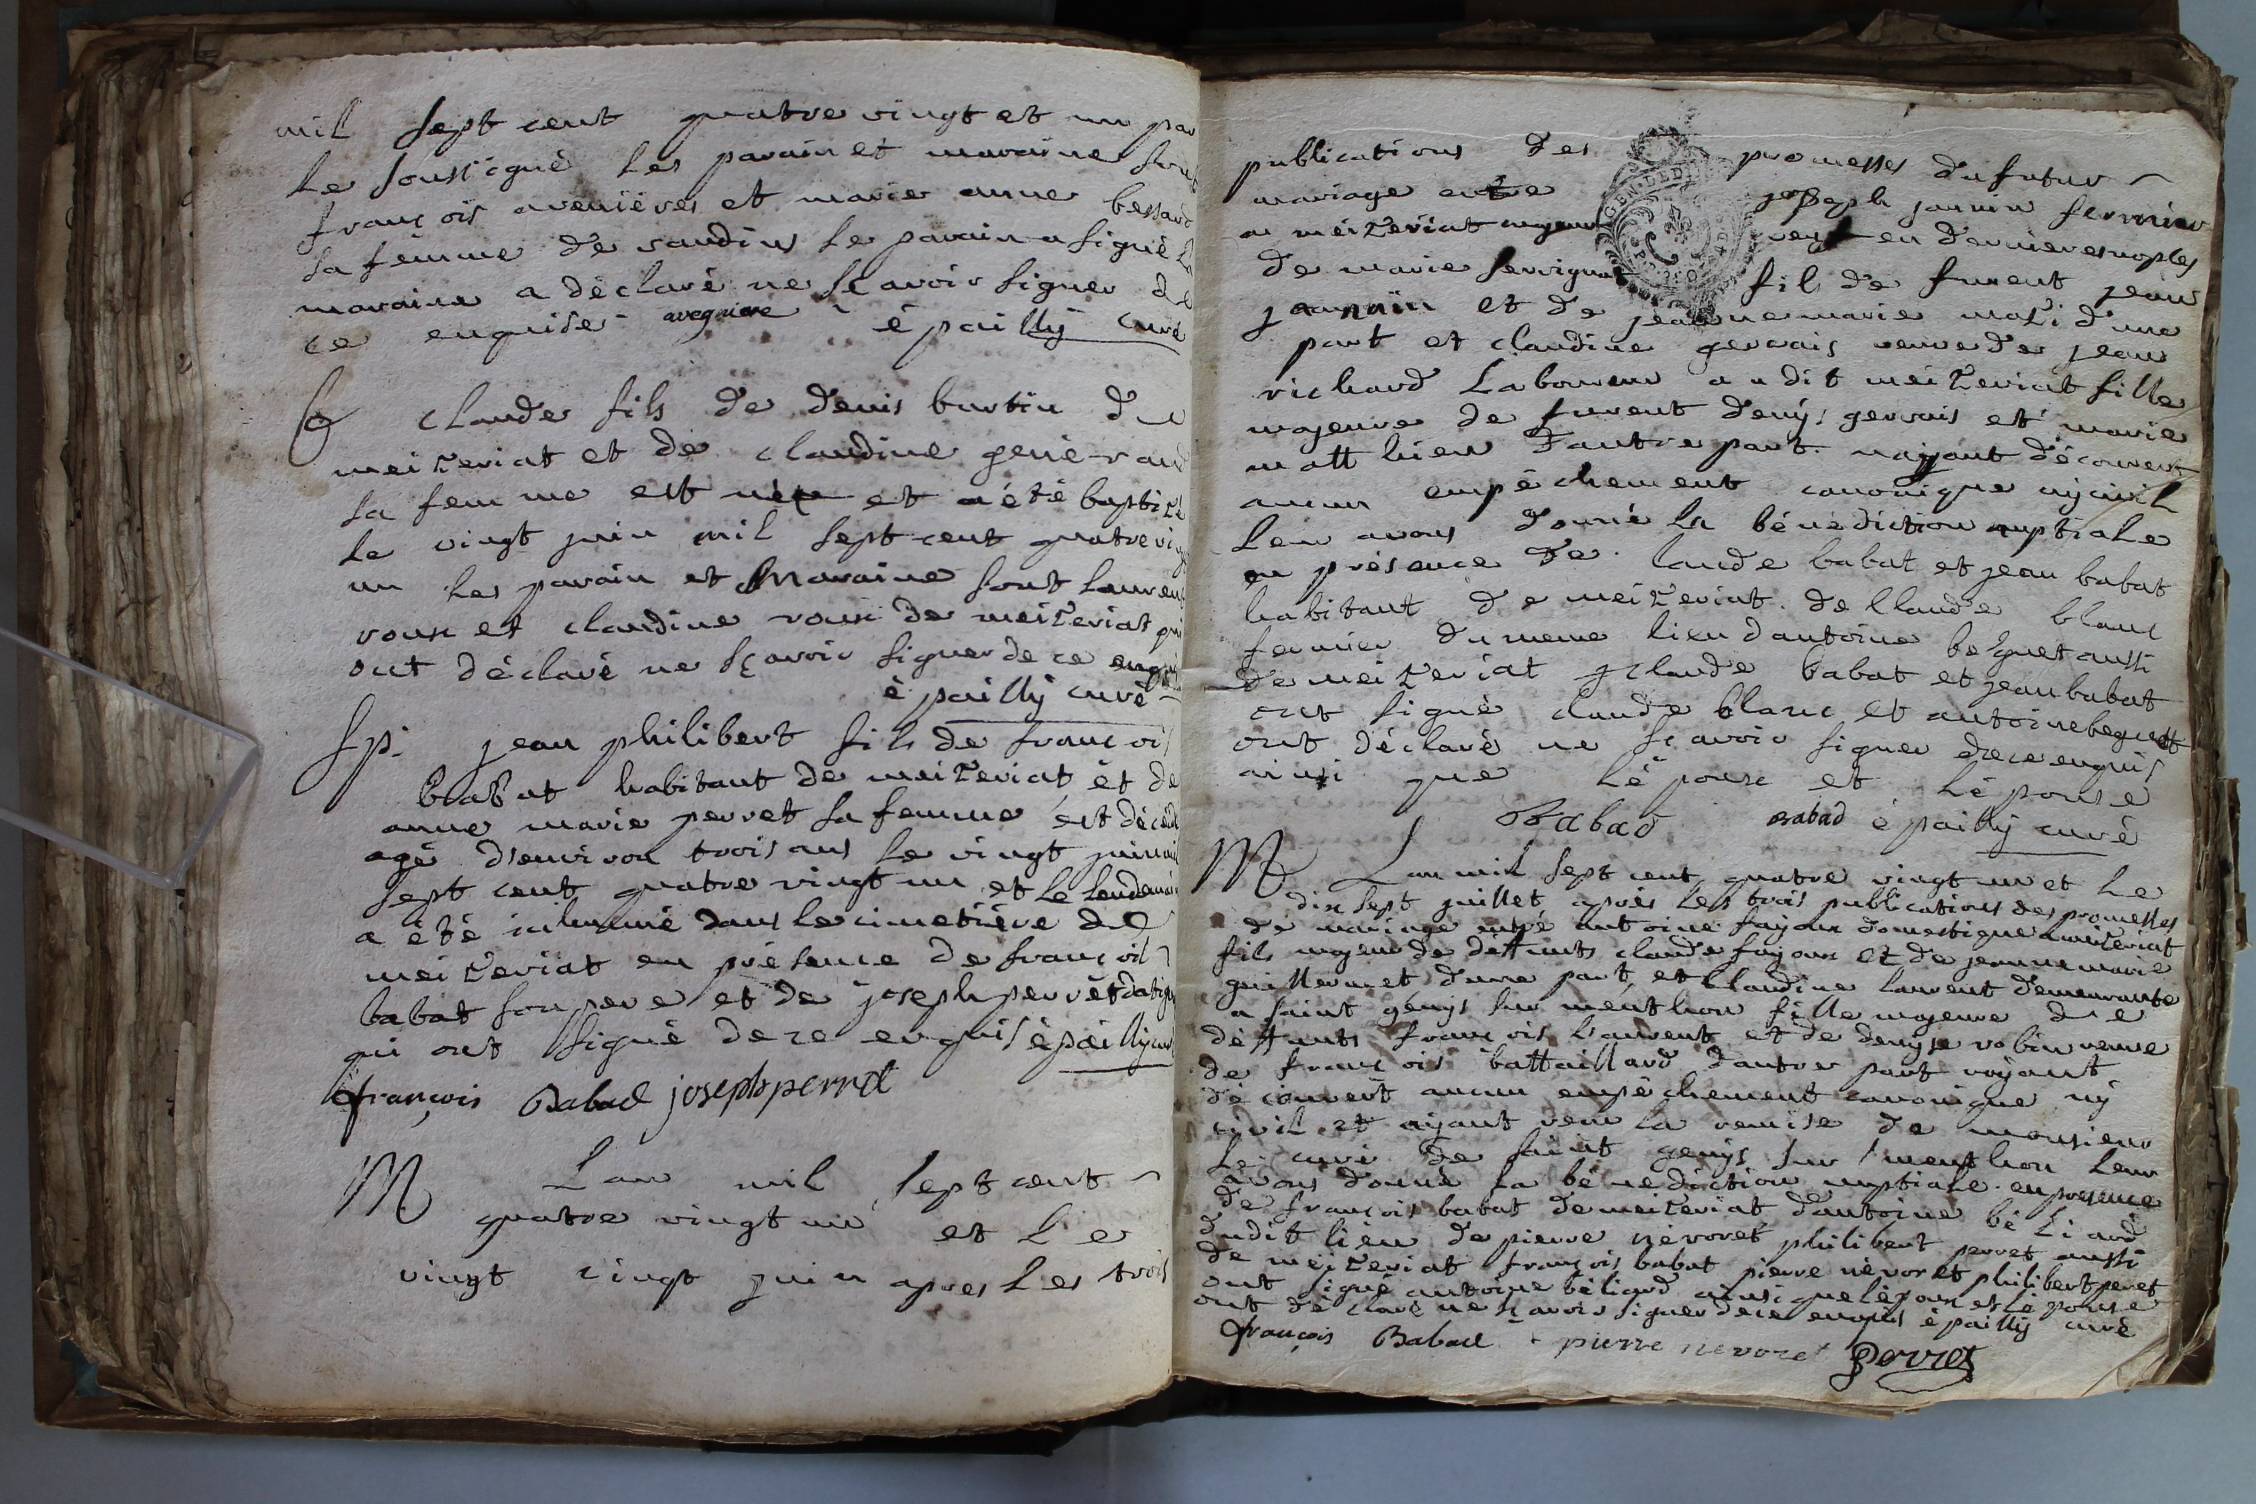 mil sept cent quatre vingt et un par
le soussigné les parain et maraine sont
françois avenières et marie anne bessard
sa femme de vandins le parain a signé la
maraine a déclaré ne sçavoir signer de
ce enquise avegniere épailly curé
B claude fils de denis burtin de
meizeriat et de claudine
sa femme est né et a été baptizé
le vingt juin mil sept cent quatre vingt
un les parain et maraine sont laurent
roux et claudine roux de meizeriat qui
ont déclaré ne sçavoir signer de ce enquis
épailly curé
Sp. jean philibert fils de françois
babat habitant de meizeriat et de
anne marie perret sa femme est décédé
agé denviron trois ans le vingt juin mil
sept cent quatre vingt un et le lendemain
a été inhumé dans le cimetière de
meizeriat en présence de françois
babat son pere et de joseph perret
qui ont signé de ce enquis épailly curé
françois Babad joseph perret
M Lan mil sept cent
quatre vingt un et le
vingt cinqt juin apres les trois
publications des promesses du futur
mariage entre joseph jannin fermier
a meizeriat majeur veuf en derniere noples
de marie fils de furent jean
jannin et de jeanne marie d'une
part et claudine gervais veuve de jean
richard laboureur au dit meizeriat fille
majeure de furent denÿs gervais et marie
matthieu d'autre part. naÿant découvert
aucun empéchement canonique nÿ civil
leur avons donné la bénédiction nuptiale
en présence de laude babat et jean babat
habitant de meizeriat. de Claude blanc
fermier du meme lieu dantoine beguet aussi
de meizeriat claude babat et jean babat
ont signé claude blanc et antoine beguet
ont déclaré ne sçavoir signer de ce enquis
ainsi que lépoux et lépouse
Babad Babad épailly curé
M Lan mil sept cent quatre vingt un et le
dix sept juillet après les trois publications des promesses
de mariage entre antoine fayoux domestique a meizeriat
fils majeur de déffunts claude fayoux et de jeanne marie
guillermet dune part, et Claudine laurent demeurante
a saint genÿs sur menthon fille majeure de
déffunts françois laurent et de denÿse robin veuve
de françois battaillard d'autre part nayant
découvert aucun empéchement canonique nÿ
civil et aÿant veu la remise de monsieur
le curé de saint genÿs sur menthon leur
avons donné la bénédiction nuptiale. en presence
de françois babat de meizeriat dantoine béliard
dudit lieu de pierre nevoret philibert perret aussi
de meizeriat françois babat pierre nevoret philibert peret
ont signé antoine béliard ainsi que lépoux et lépouse
ont déclaré ne sçavoir signer de ce enquis épailly curé
françois Babad pierre nevoret Perret